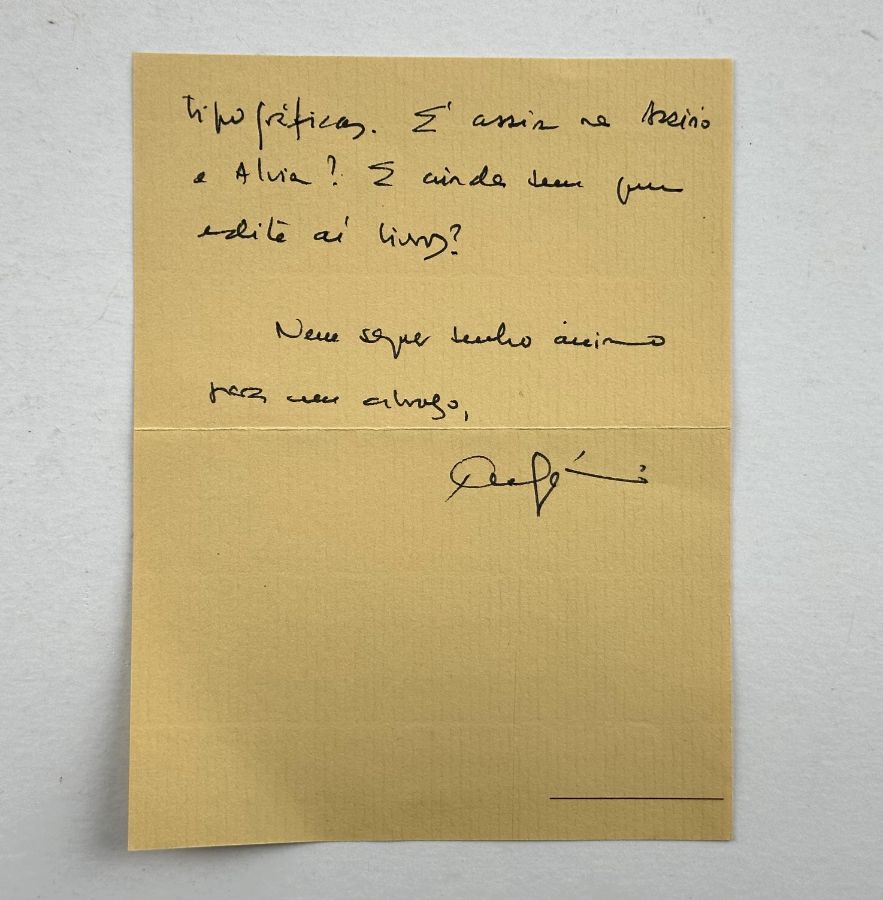 tipográficas. É assim na Assírio
e Alvim? E ainda tem quem
edite aí livros?
Nem sequer tenho ânimo
para um abraço,